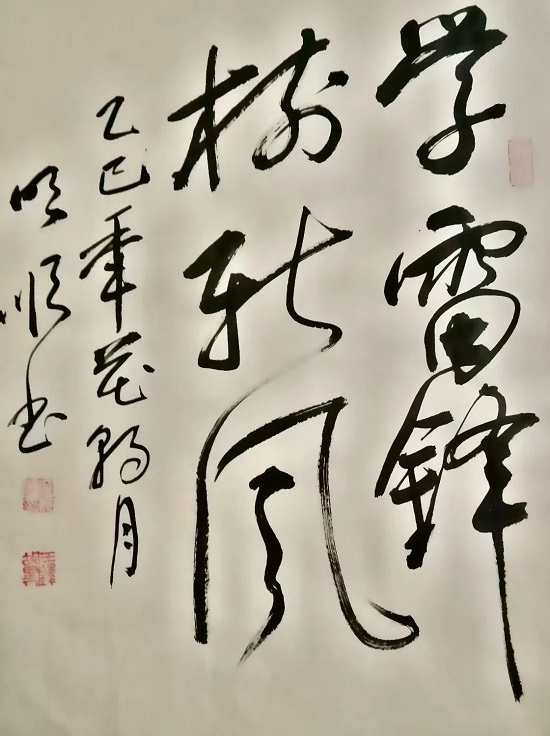 学雷锋
树新风
乙巳年花朝月
明顺书